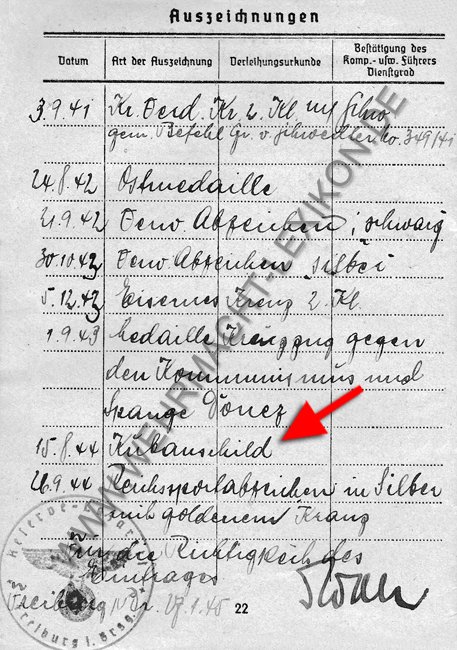 Auszeichnungen
Datum Art der Auszeichnung Verleihungsurkunde Bestätigung des Komp.- usw. Führers Dienstgrad
3.9.41 Kr. Verd. Kr. 2. Kl. mit Schw.
gem. Befehl Gr. v. Schwedler No. 349/41
24.8.42 Ostmedaille
21.9.42 Verw. Abzeichen, schwarz
30.10.42 Verw. Abzeichen silber
5.12.42 Eisernes Kreuz 2. Kl.
1.9.43 Medaille Kreuzzug gegen
den Kommunismus und
Spange Donez
15.8.44 Kubanschild
26.9.44 Reichssportabzeichen in Silber
mit goldenem Kranz
Für die Richtigkeit des
Eintrages
Freiburg i. Br. 27.1.45
22
WWW.WEHRMACHT-LEXIKON.DE